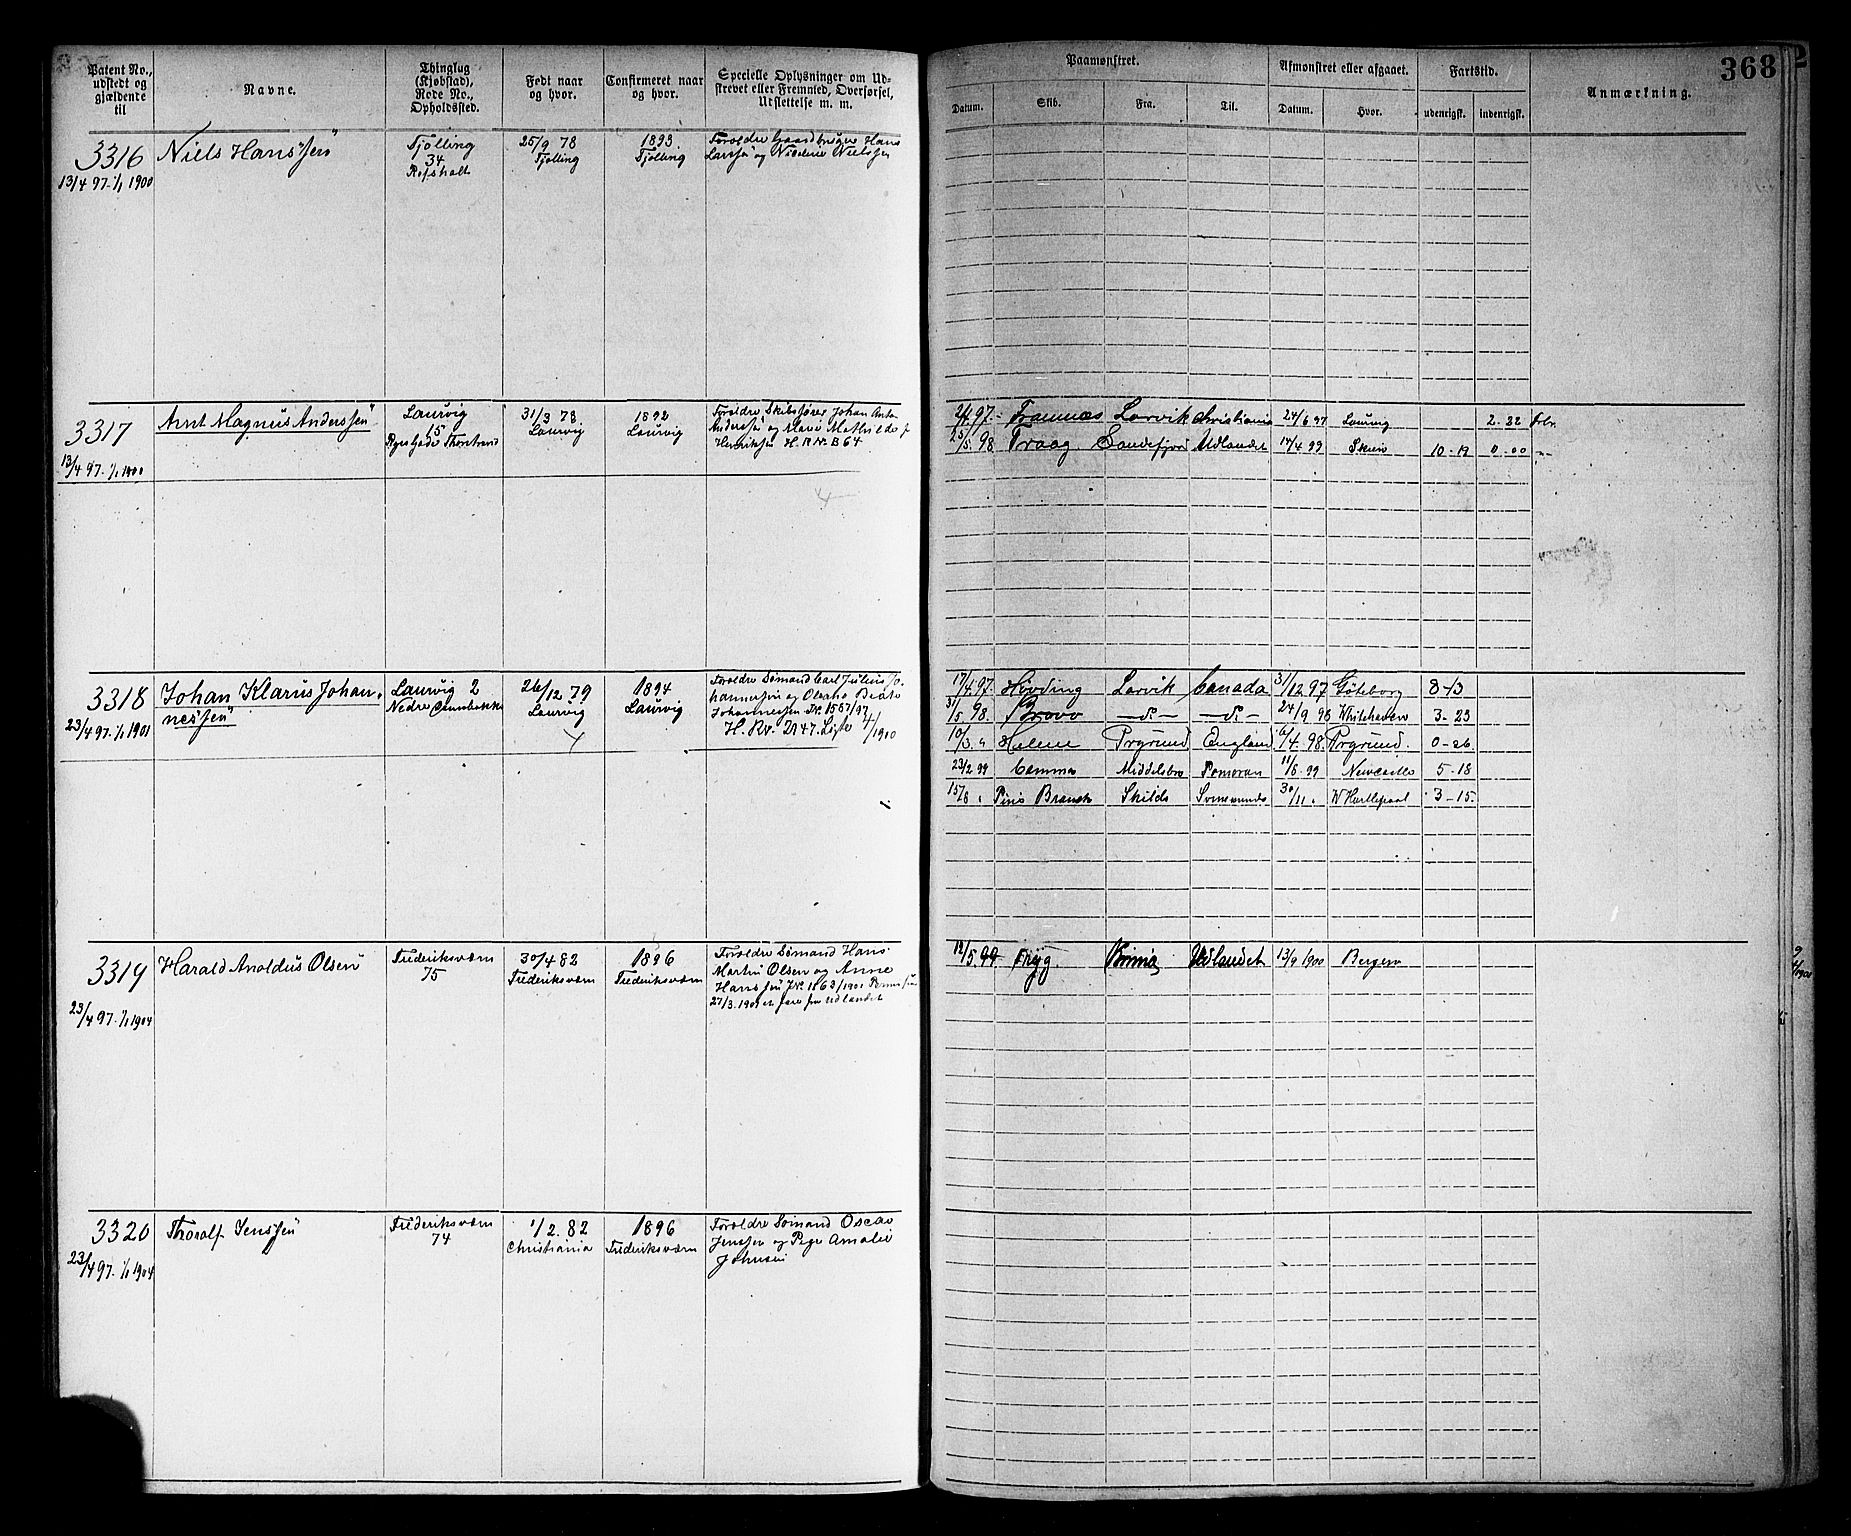 368
Patent No., udstedt og gjældende til
Navne.
Thinglag (Kjøbstad), Rode No., Opholdssted.
Født naar og hvor.
Confirmeret naar og hvor.
Specielle Oplysninger om Udstrevet eller Fremmed, Overførsel, Udslettelse m. m.
Paamønstret.
Afmønstret eller afgaaet.
Fartstid.
Anmærkning.
Datum.
Skib.
Fra.
Til.
Datum.
Hvor.
udenrigsk.
indenrigsk.
3316
13/4 97. 1/1 1900
Niels Hanssen
Tjølling
34
Refsholt
25/9 78
Tjølling
1893.
Tjølling
Forældre Gaardbruger Hans
Larssen og Nielssen
3317
13/4 97. 1/1 1900
Arnt Magnus Anderssen
Laurvig
15
31/3 78
Laurvig
1892
Laurvig
Forældre Skibsfører Johan Anton
Anderssen og Mathilde f
Henriksen H. R. Nr. B 64
97. Framnæs Larvik Christiania 24/6 97 Laurvig 2. 22
25/5. 98 Traag Sandefjord Udlandet 14/4 99 Skien 10-19 0.00
3318
23/4 97. 1/1 1901
Johan Klarus Johan-
nessen
Laurvig 2
Nedre
26/12 79
Laurvig
1894
Laurvig
Forældre Sømand Carl Julius Jo-
hannessen og Beate
Johannessen JK. 1567/97
H. Rv. Nr 47. Liste 4/1900
17/4. 97. Høvding Larvik Canada 31/12 97 Göteborg 8-13
31/5 98. Bravo -d°- -d°- 24/9 98 Whitehaven 3-23
10/3 " Helene Prgrund England 6/4. 98. Prgrund. 0-26
23/2 99 Gamma Middelsbro 11/8. 99 Newcastle 5-18
15/8 " Skilds 30/11 " W Hartlepool 3-15.
3319
23/4 97. 1/1 1904
Harald Anoldus Olsen
Frederiksværn
75
30/4 82
Frederiksværn
1896
Frederiksværn
Forældre Sømand Hans
Martin Olsen og Anne
Hanssen JK. 1863/1901
27/3. 1901 at fare fra udlandet
12/5. 99 Frÿg. Udlandet 13/9 1900 Bergen
3320
23/4 97. 1/1 1904
Thoralf Jenssen
Frederiksværn
74
1/2. 82
Christiania
1896
Frederiksværn
Forældre Sømand Oscar
Jenssen og Amalie
Johnsen